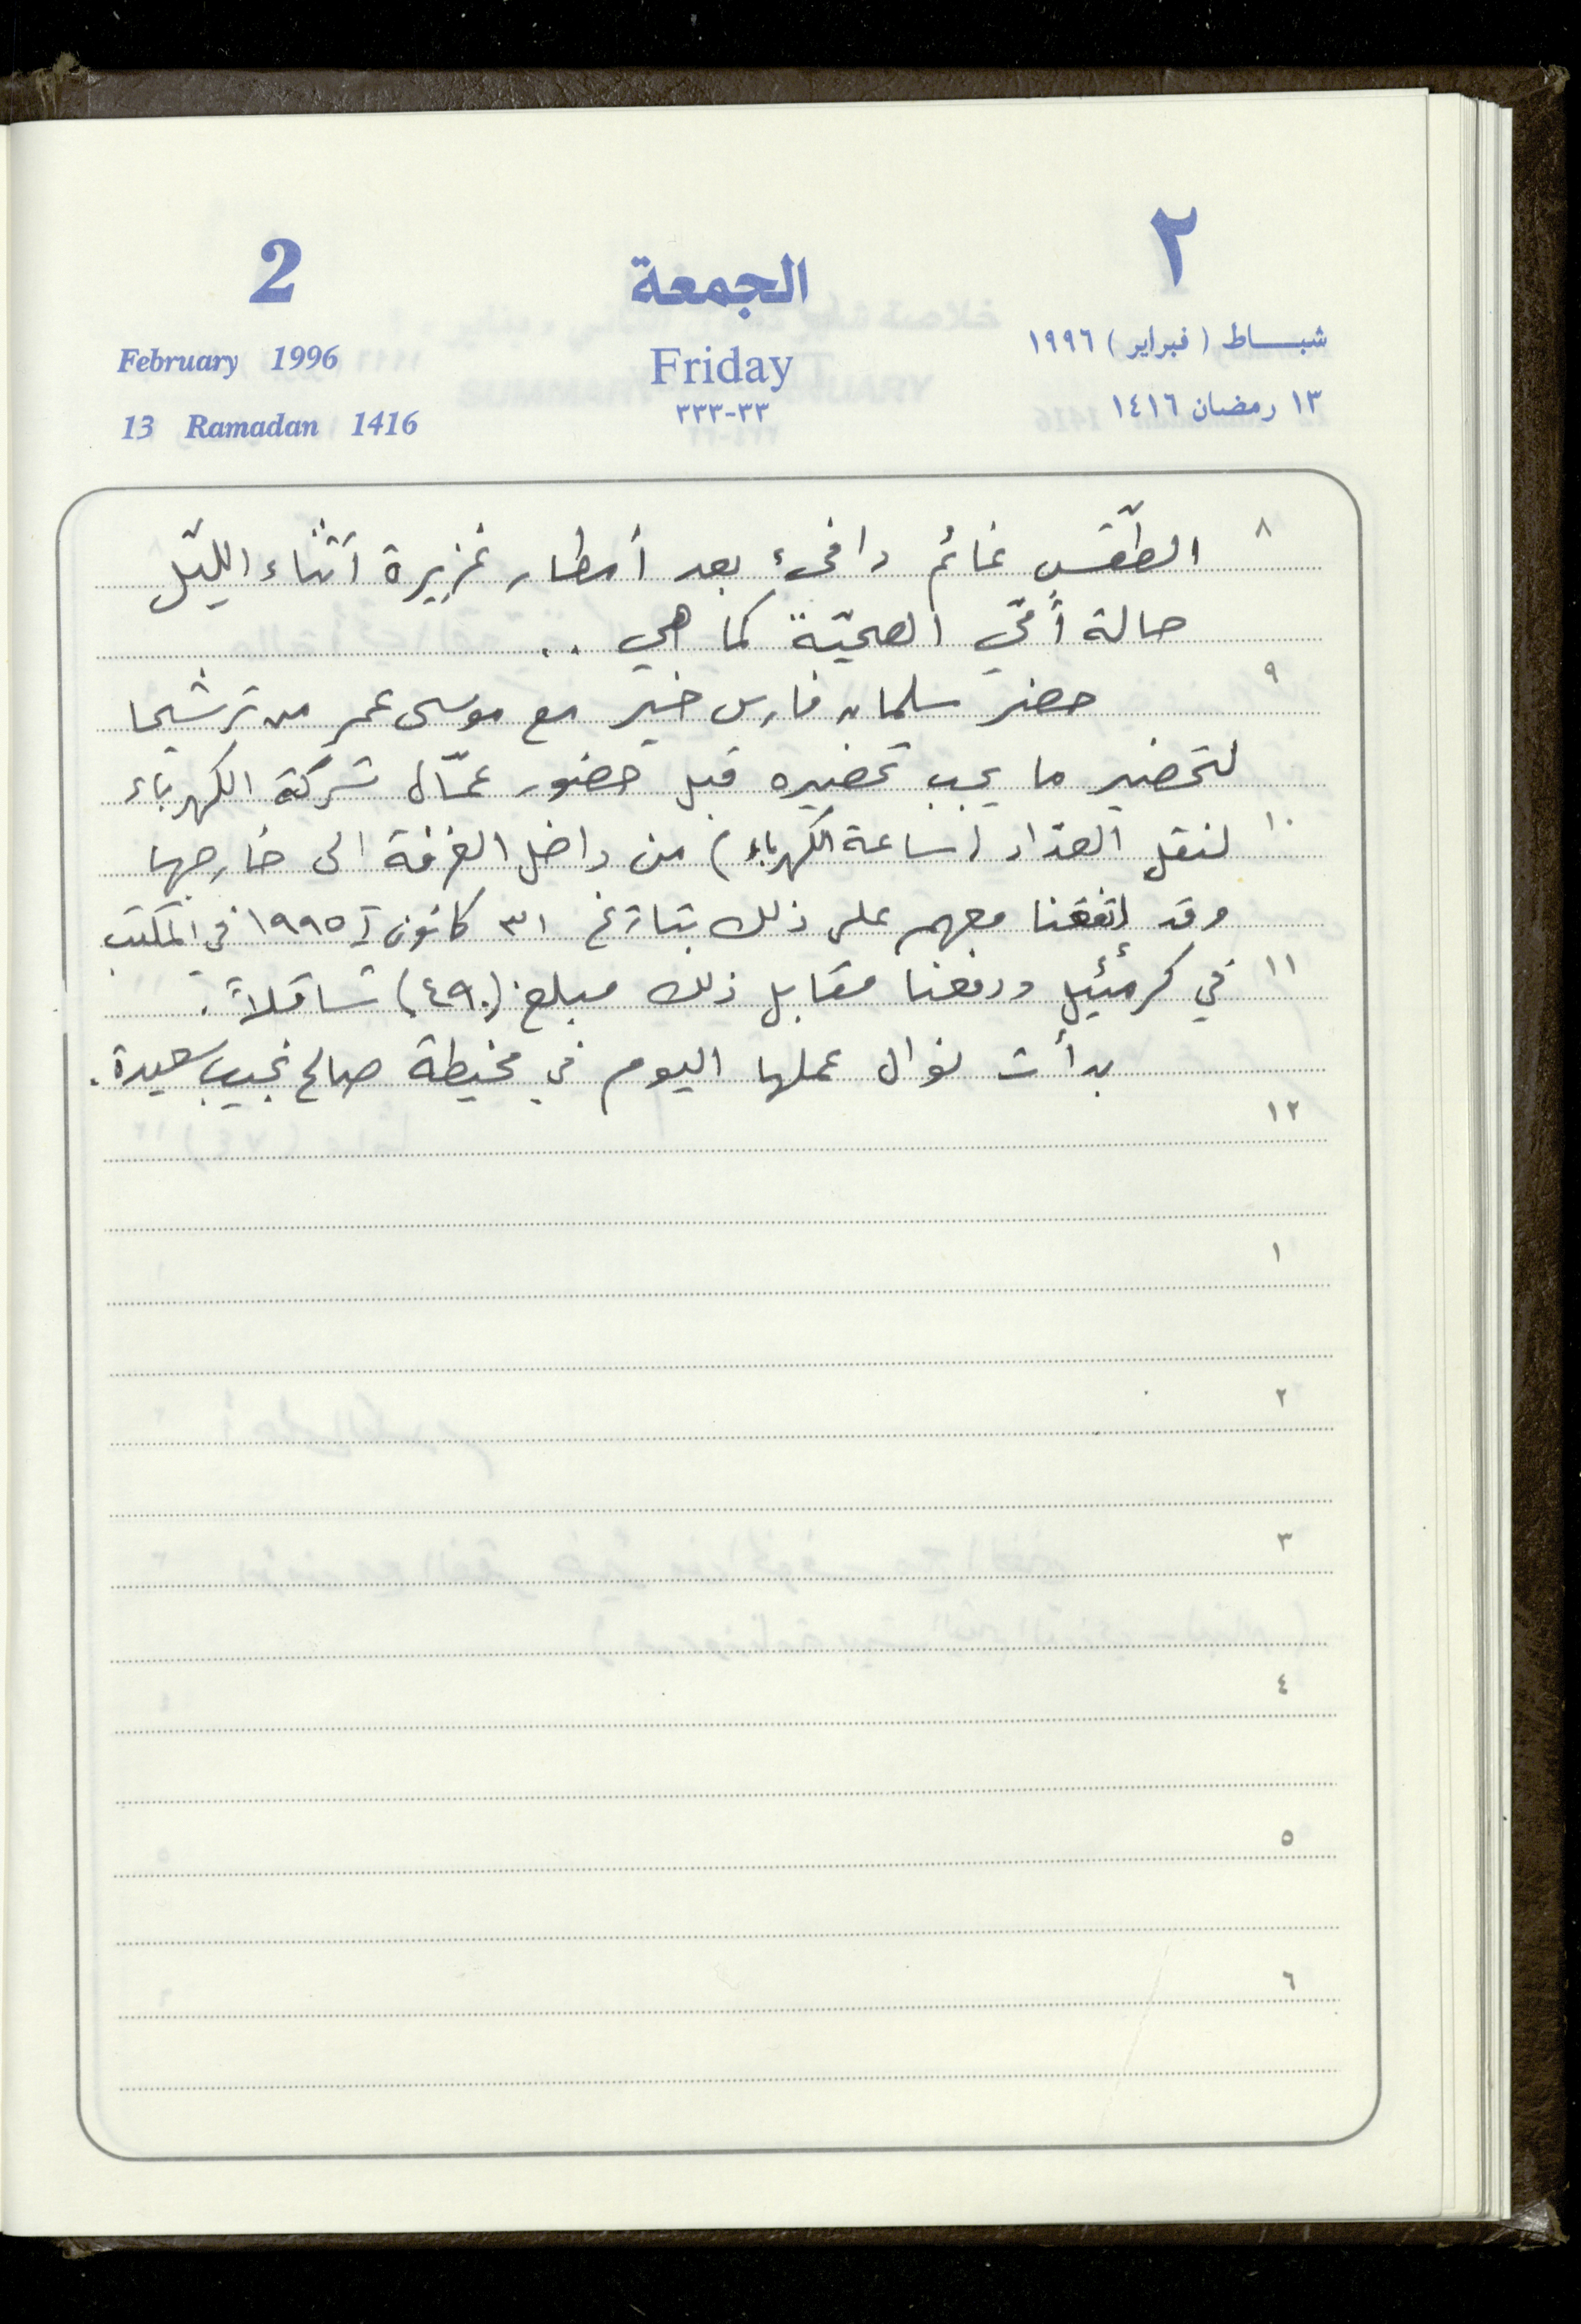 2 الجمعة ٢
February 1996 Friday شبـــاط (فبراير) ١٩٩٦
13 Ramadan 1416 ٣٣-٣٣٣ ١٣ رمضان ١٤١٦
٨ الطّقس غائم دافئ بعد أمطار غزيرة أثناء اللّيل
حالة أمّي الصحيّة كما هي ..
٩ حضر سلمان فارس خير مع موسى عمر من ترشيحا
لتحضير ما يجب تحضيره قبل حضور عمّال شركة الكهرباء
١٠ لنقل العدّاد (ساعة الكهرباء) من داخل الغرفة الى خارجها
وقد اتفقنا معهم على ذلك بتاريخ ٣١ كانون I ١٩٩٥ في المكتب
١١ في كرمئيل ودفعنا مقابل ذلك مبلغ (٤٩٠) شاقلاً.
بدأت نوال عملها اليوم في مخيطة صالح نجيب سعيدة.
١٢
١
٢
٣
٤
٥
٦